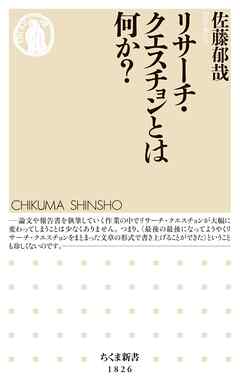 佐藤郁哉
リサーチ・
クエスチョンとは
何か?
CHIKUMA SHINSHO
―論文や報告書を執筆していく作業の中でリサーチ・クエスチョンが大幅に
変わってしまうことは少なくありません。つまり、〈最後の最後になってようやくリ
サーチ・クエスチョンをまとまった文章の形式で書き上げることができた〉というこ
とも珍しくないのです。
ちくま新書
1826